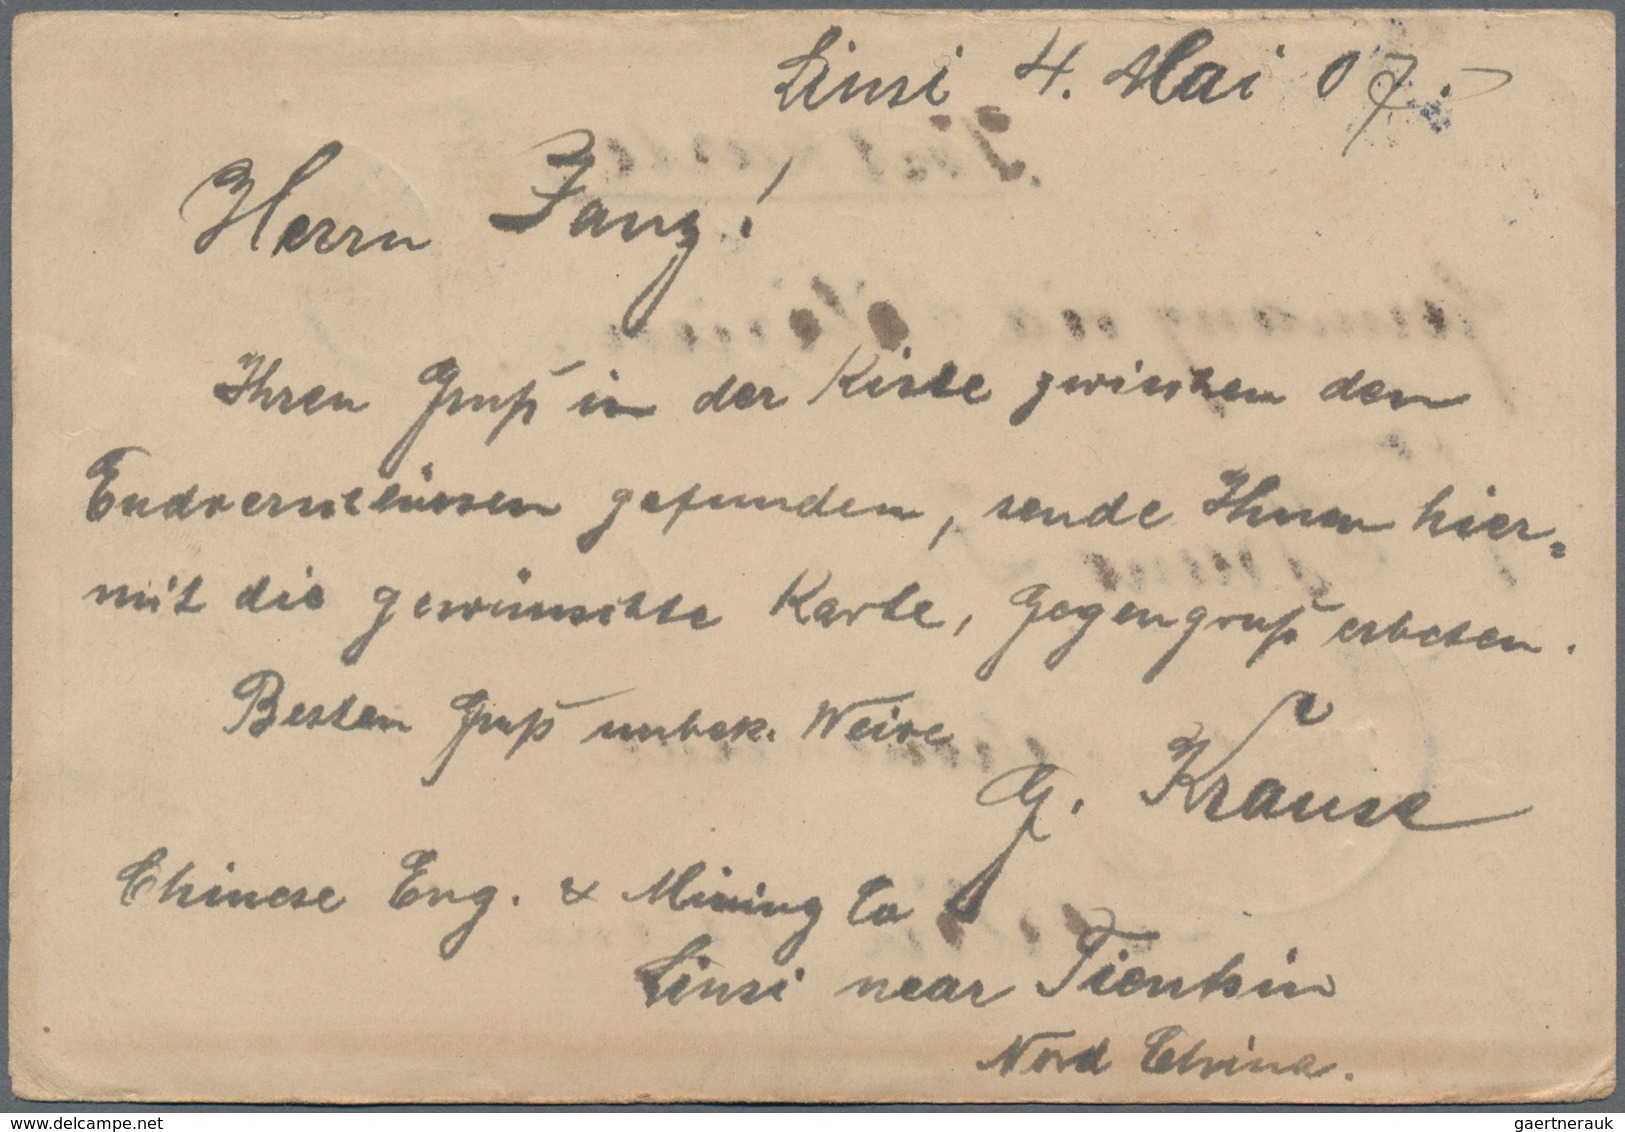 Linsi 4. Mai 07.
Herrn Janz!
Ihren Gruß in der Kiste zwischen den
Endverschlüssen gefunden, sende Ihnen hier=
mit die gewünschte Karte, Gegengruß erbeten.
Besten Gruß unbek. Weise
G. Krause
Chinese Eng. & Mining Co
Linsi near Tientsin
Nord China.
www.delcampe.net
gaertnerauk